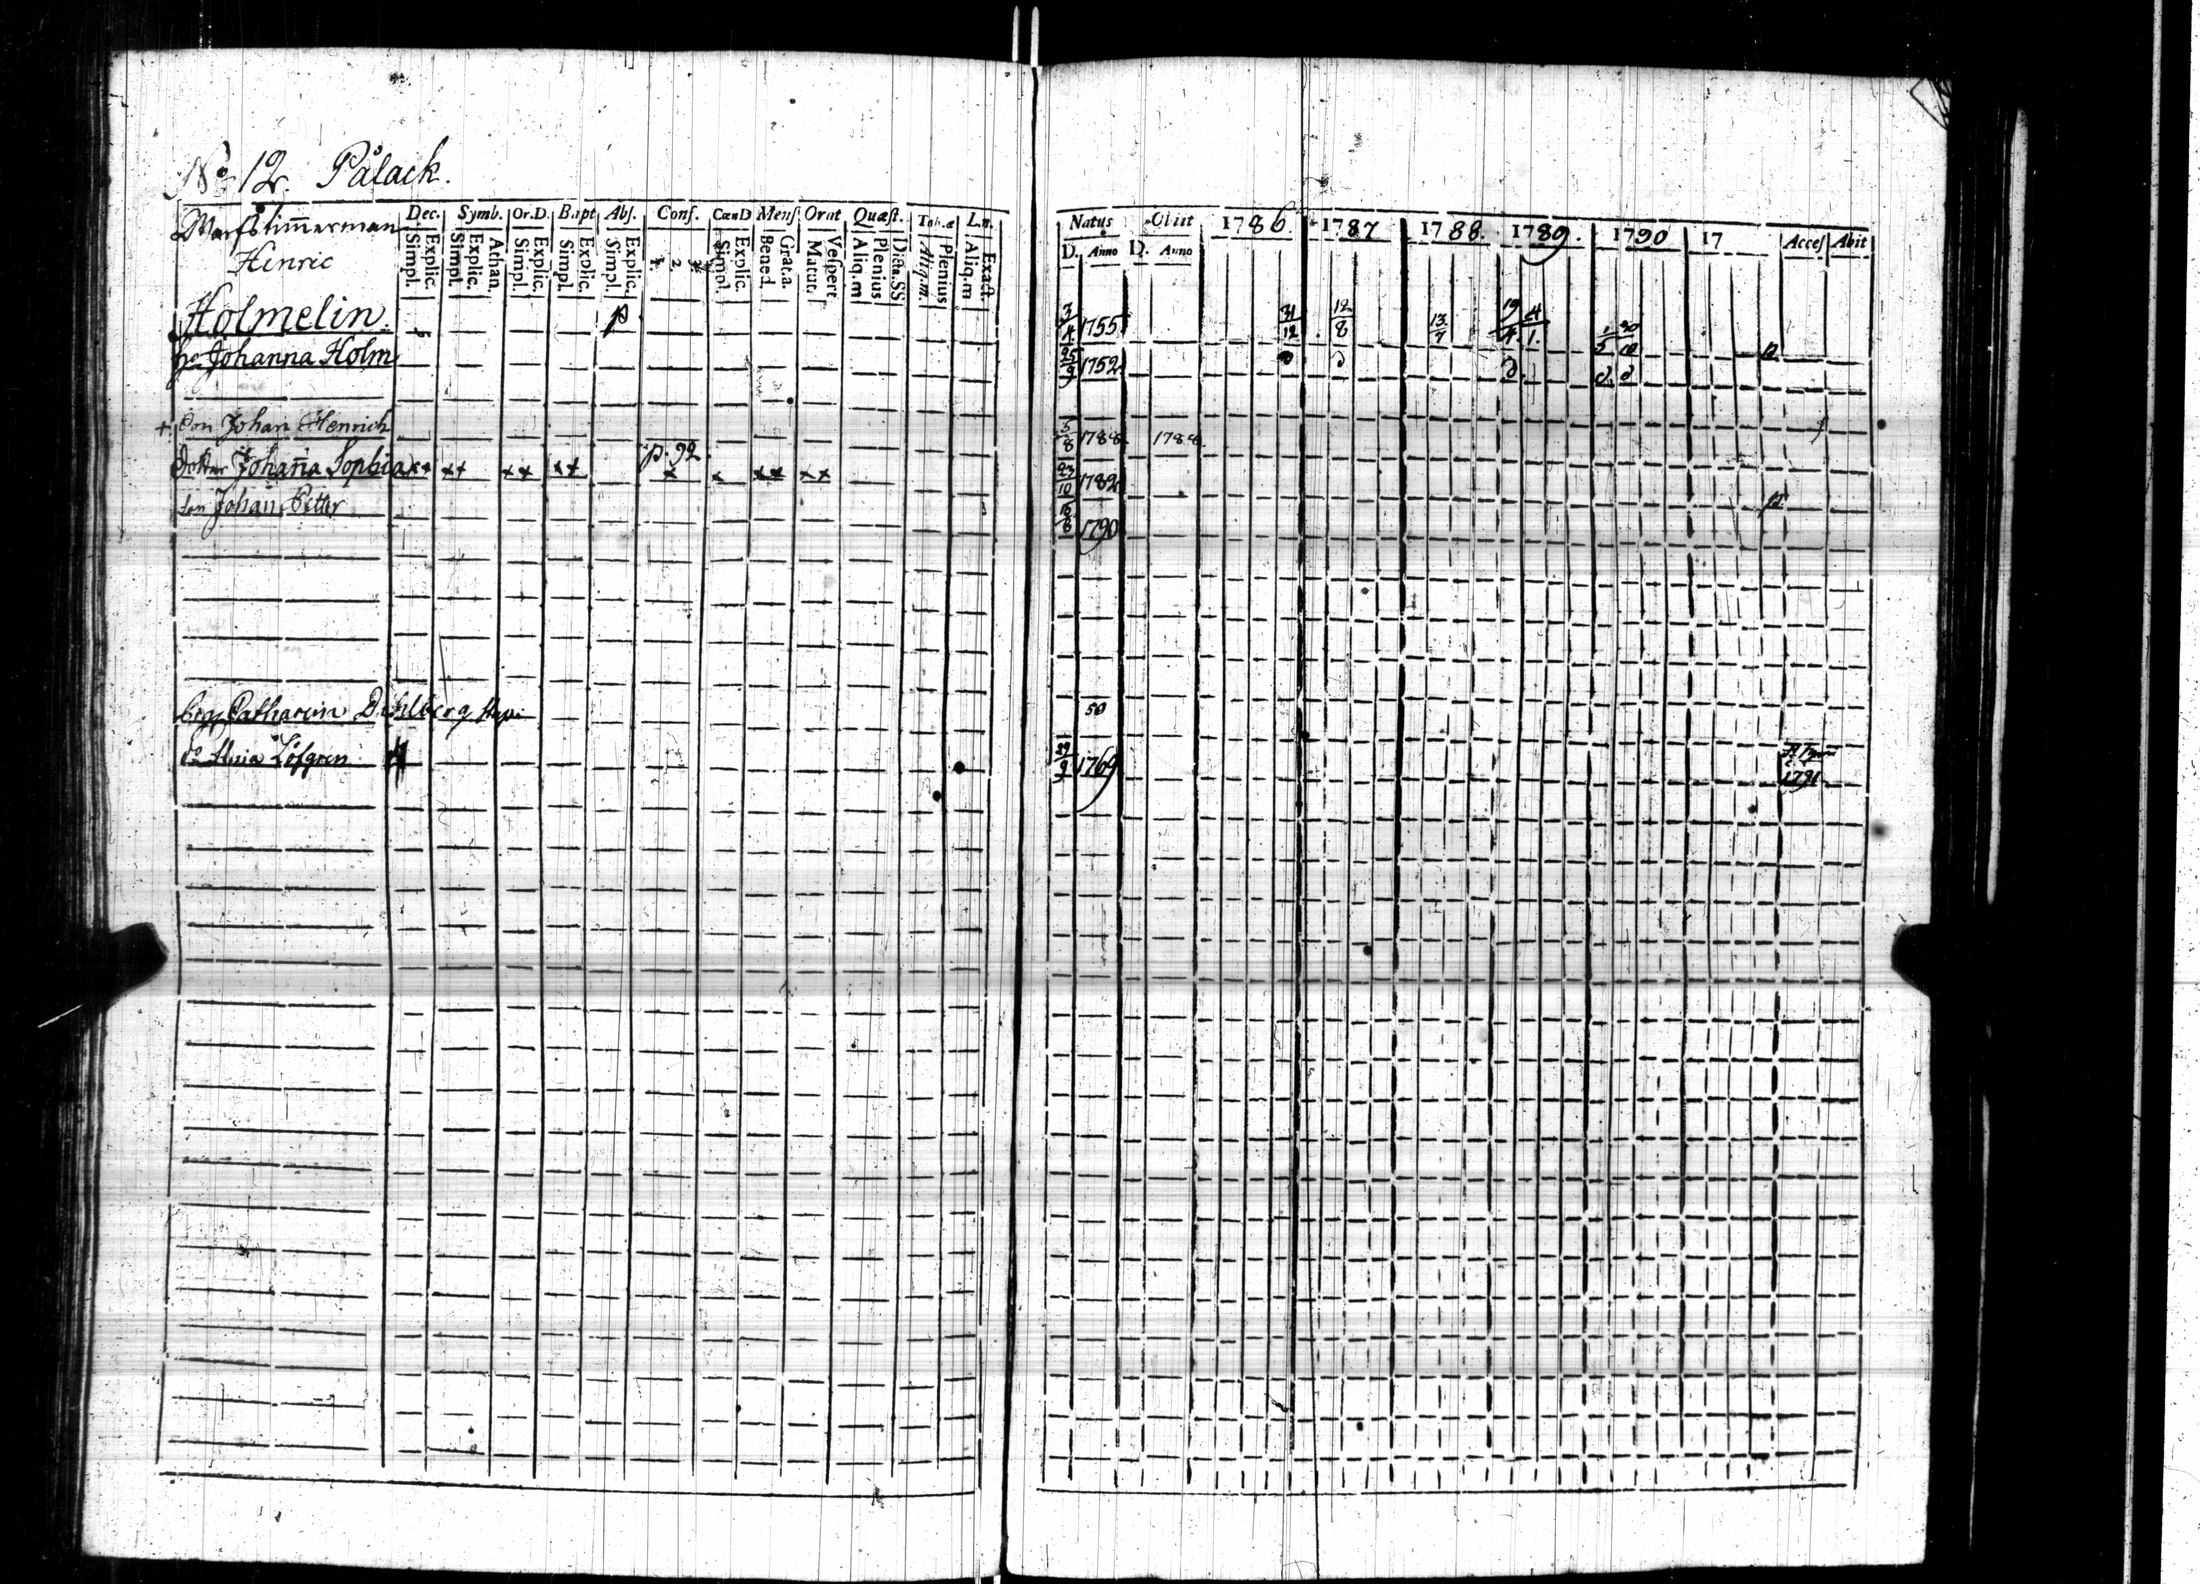 No 12. Pålack.
Dec. Symb. Or.D. Bapt Abs. Conf. CœnD Mens Orat Quæst. Tab.æ L.n.
Simpl. Explic. Simpl. Explic. Athan. Simpl. Explic. Simpl. Explic. Simpl. Explic. 1. 2. Simpl. Explic. Bened. Grat.a. Matut. Vespert Aliq.m Plenius Dicta.SS Aliq.m. Plenius Aliq.m Exact
Warfstimerman
Henric
Holmelin p
h. Johanna Holm
+ Son Johan Henrich
p. 92
dotter Johana Sophia ×× ×× ×× ×× × × ×× ××
son Johan Petter
Catharina Dahlberg
Löfgren
Natus Obiit 1786. 1787 1788. 1789. 1790 17 Acces Abit
D. Anno D. Anno
3/4 1755 31/12 12/8 13/7 19/4 4/1.
25/9 1752
5/8 1788 1788
23/10 1782
16/6 1790
50
29/9 1769
1791